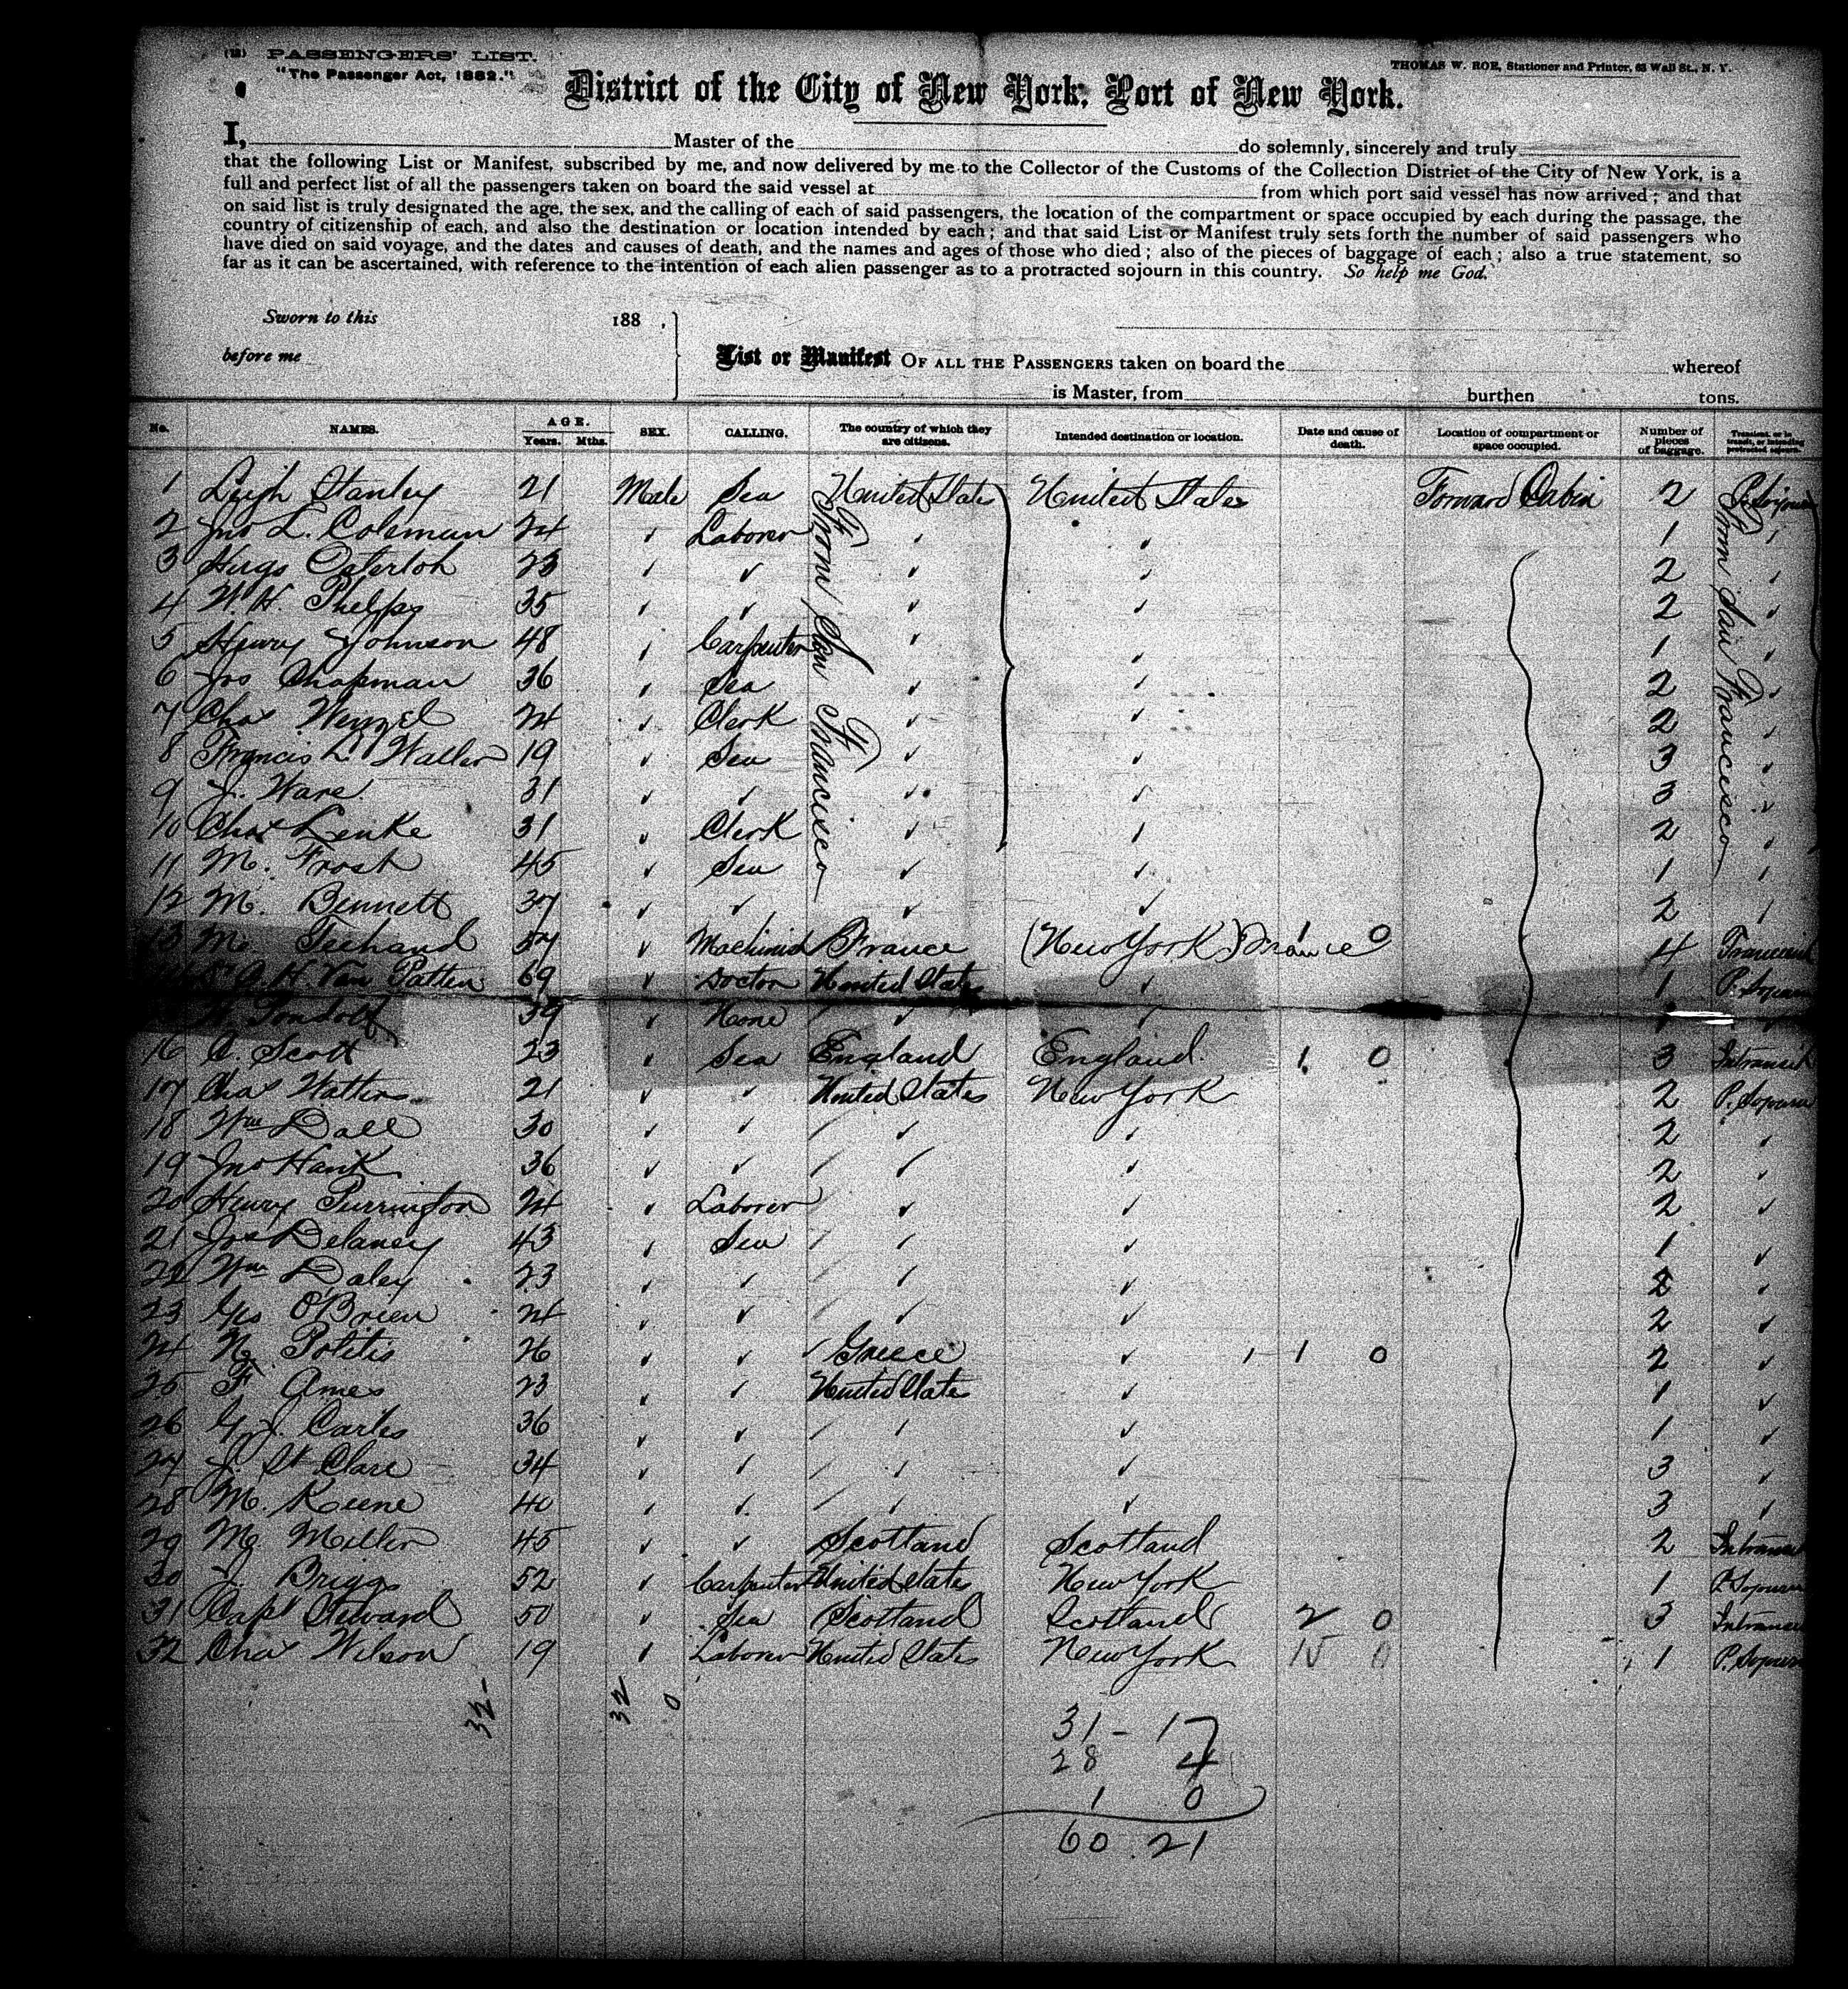 (12) PASSENGERS' LIST.
"The Passenger Act, 1882."
THOMAS W. ROE, Stationer and Printer, 63 Wall St., N. Y.
District of the City of New York, Port of New York.
I, Master of the do solemnly, sincerely and truly
that the following List or Manifest, subscribed by me, and now delivered by me to the Collector of the Customs of the Collection District of the City of New York, is a
full and perfect list of all the passengers taken on board the said vessel at from which port said vessel has now arrived; and that
on said list is truly designated the age, the sex, and the calling of each of said passengers, the location of the compartment or space occupied by each during the passage, the
country of citizenship of each, and also the destination or location intended by each; and that said List or Manifest truly sets forth the number of said passengers who
have died on said voyage, and the dates and causes of death, and the names and ages of those who died; also of the pieces of baggage of each; also a true statement, so
far as it can be ascertained, with reference to the intention of each alien passenger as to a protracted sojourn in this country. So help me God.
Sworn to this 188 ,
before me
List or Manifest OF ALL THE PASSENGERS taken on board the whereof
is Master, from burthen tons.
No. NAMES. AGE. Years. Mths. SEX. CALLING. The country of which they are citizens. Intended destination or location. Date and cause of death. Location of compartment or space occupied. Number of pieces of baggage. Transient, or in transit, or intending protracted sojourn.
1 Leigh Stanley 21 Male Sea United States United States Forward Cabin 2 P. Sojourn
From San Francisco
From San Francisco
2 Jno L. Coleman 24 ✓ Laborer ✓ ✓ 1 ✓
3 Hugo Osterloh 23 ✓ ✓ ✓ ✓ 2 ✓
4 W. H. Phelps 35 ✓ ✓ ✓ ✓ 2 ✓
5 Henry Johnson 48 ✓ Carpenter ✓ ✓ 1 ✓
6 Jos Chapman 36 ✓ Sea ✓ ✓ 2 ✓
7 Chas Wenzel 24 ✓ Clerk ✓ ✓ 2 ✓
8 Francis L. Waller 19 ✓ Sea ✓ ✓ 3 ✓
9 J. Ware 31 ✓ ✓ ✓ ✓ 3 ✓
10 Chas Lenke 31 ✓ Clerk ✓ ✓ 2 ✓
11 M. Frost 45 ✓ Sea ✓ ✓ 1 ✓
12 M. Bennett 37 ✓ ✓ ✓ ✓ 2 ✓
13 M. 57 ✓ Machinist France (New York) France 1 0 4 Transient
14 Dr A. H. Van Patten 69 ✓ Doctor United States ✓ 1 P. Sojourn
39 ✓ None ✓ ✓
16 A. Scott 23 ✓ Sea England England 1 0 3 Intransit
17 Chas Watters 21 ✓ ✓ United States New York 2 P. Sojourn
18 Wm Dall 30 ✓ ✓ ✓ ✓ 2 ✓
19 Jno Hank 36 ✓ ✓ ✓ ✓ 2 ✓
20 Henry Purrington 24 ✓ Laborer ✓ ✓ 2 ✓
21 Jos Delaney 43 ✓ Sea ✓ ✓ 1 ✓
22 Wm Daley 23 ✓ ✓ ✓ ✓ 2 ✓
23 O'Brien 24 ✓ ✓ ✓ ✓ 2 ✓
24 N. Politis 26 ✓ ✓ Greece ✓ 1 1 0 2 ✓
25 F. Ames 23 ✓ ✓ United States ✓ 1 ✓
26 G. J. Carles 36 ✓ ✓ ✓ ✓ 1 ✓
27 J. St Clare 34 ✓ ✓ ✓ ✓ 3 ✓
28 M. Keene 40 ✓ ✓ ✓ ✓ 3 ✓
29 Miller 45 ✓ ✓ Scotland Scotland 2 Intransit
30 J. Briggs 52 ✓ Carpenter United States New York 1 P. Sojourn
31 Capt Steward 50 ✓ Sea Scotland Scotland 2 0 3 Intransit
32 Chas Wilson 19 ✓ Laborer United States New York 15 0 1 P. Sojourn
32- 32 0
31 - 17
28 4
1 0
60 21